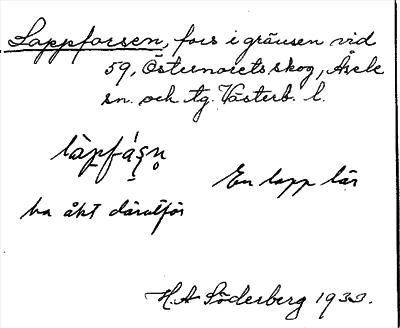 Lappforsen, fors i gränsen vid
59, Östernoretsskog, Åsele
sn. och tg. Västerb. l.
làpfá̱s̨n̥
En lapp lär
ha åkt därutför
H.A Söderberg 1933.